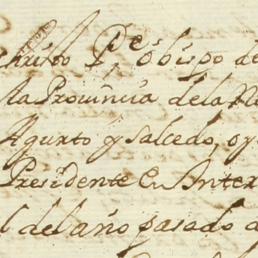 christo Pe obispo de
la Provincia de la Pl
Agurto y Salcedo, oy
Presidente En Inter
l del año pasado d